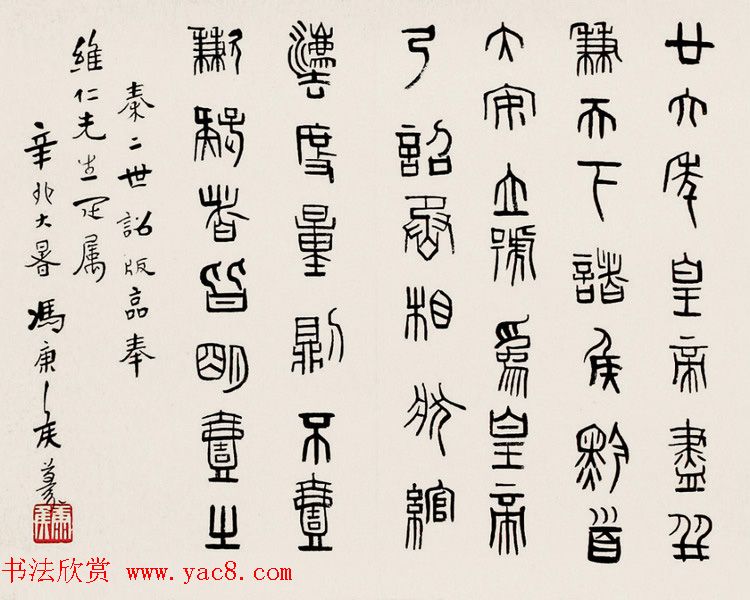 廿六年皇帝盡并
兼天下諸侯黔首
大安立號爲皇帝
乃詔丞相狀綰
灋度量則不壹
歉疑者皆明壹之
秦二世詔版奉
維仁先生正属
辛卯大暑馮康侯摹
书法欣赏 www.yac8.com